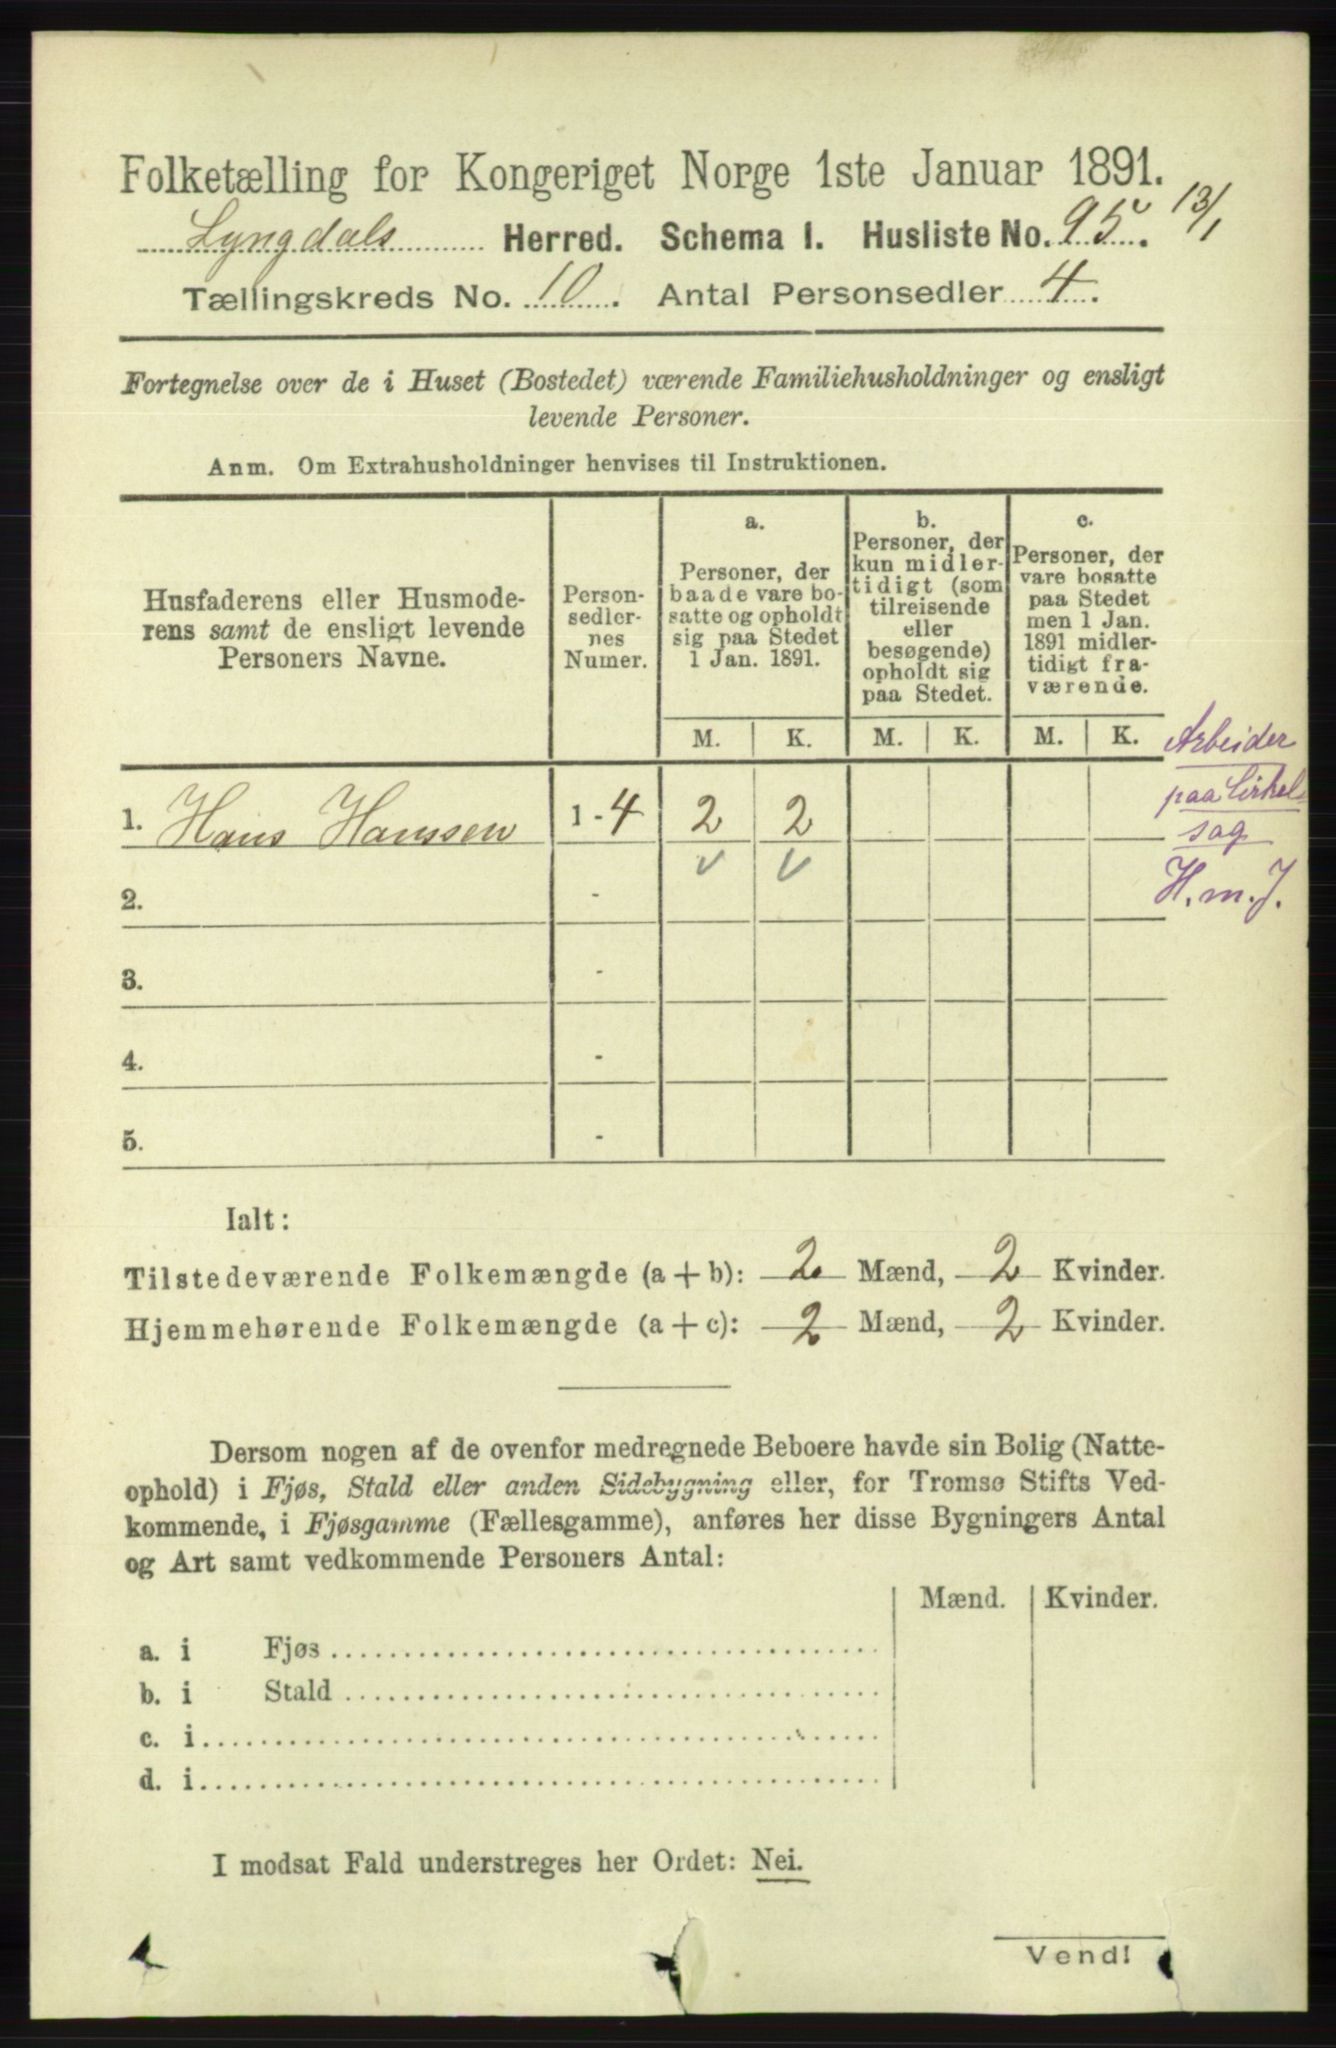 Folketælling for Kongeriget Norge 1ste Januar 1891.
13/1
Lyngdals Herred. Schema I. Husliste No. 95.
Tællingskreds No. 10. Antal Personsedler 4.
Fortegnelse over de i Huset (Bostedet) værende Familiehusholdninger og ensligt
levende Personer.
Anm. Om Extrahusholdninger henvises til Instruktionen.
Husfaderens eller Husmode-
rens samt de ensligt levende
Personers Navne.
Person-
sedler-
nes
Numer.
a.
Personer, der
baade vare bo-
satte og opholdt
sig paa Stedet
1 Jan. 1891.
b.
Personer, der
kun midler-
tidigt (som
tilreisende
eller
besøgende)
opholdt sig
paa Stedet.
c.
Personer, der
vare bosatte
paa Stedet
men 1 Jan.
1891 midler-
tidigt fra-
værende.
M. K. M. K. M. K.
Arbeider
paa Cirkel
sag
H. m. J.
1. Hans Hanssen 1 - 4 2 2
2. -
3. -
4. -
5. -
Ialt:
Tilstedeværende Folkemængde (a + b): 2 Mænd, 2 Kvinder.
Hjemmehørende Folkemængde (a + c): 2 Mænd, 2 Kvinder.
Dersom nogen af de ovenfor medregnede Beboere havde sin Bolig (Natte-
ophold) i Fjøs, Stald eller anden Sidebygning eller, for Tromsø Stifts Ved-
kommende, i Fjøsgamme (Fællesgamme), anføres her disse Bygningers Antal
og Art samt vedkommende Personers Antal:
Mænd. Kvinder.
a. i Fjøs
b. i Stald
c. i
d. i
I modsat Fald understreges her Ordet: Nei.
Vend!